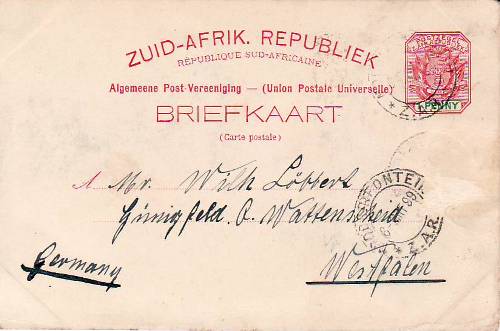 ZUID-AFRIK. REPUBLIEK
RÉPUBLIQUE SUD-AFRICAINE
Algemeene Post-Vereeniging — (Union Postale Universelle)
BRIEFKAART
(Carte postale)
1 PENNY
Z.A.R.
A Mr. Wilh Löbbert
Günnigfeld O. Wattenscheid
Germany
Westfalen
FONTEIN
99
Z.A.R.